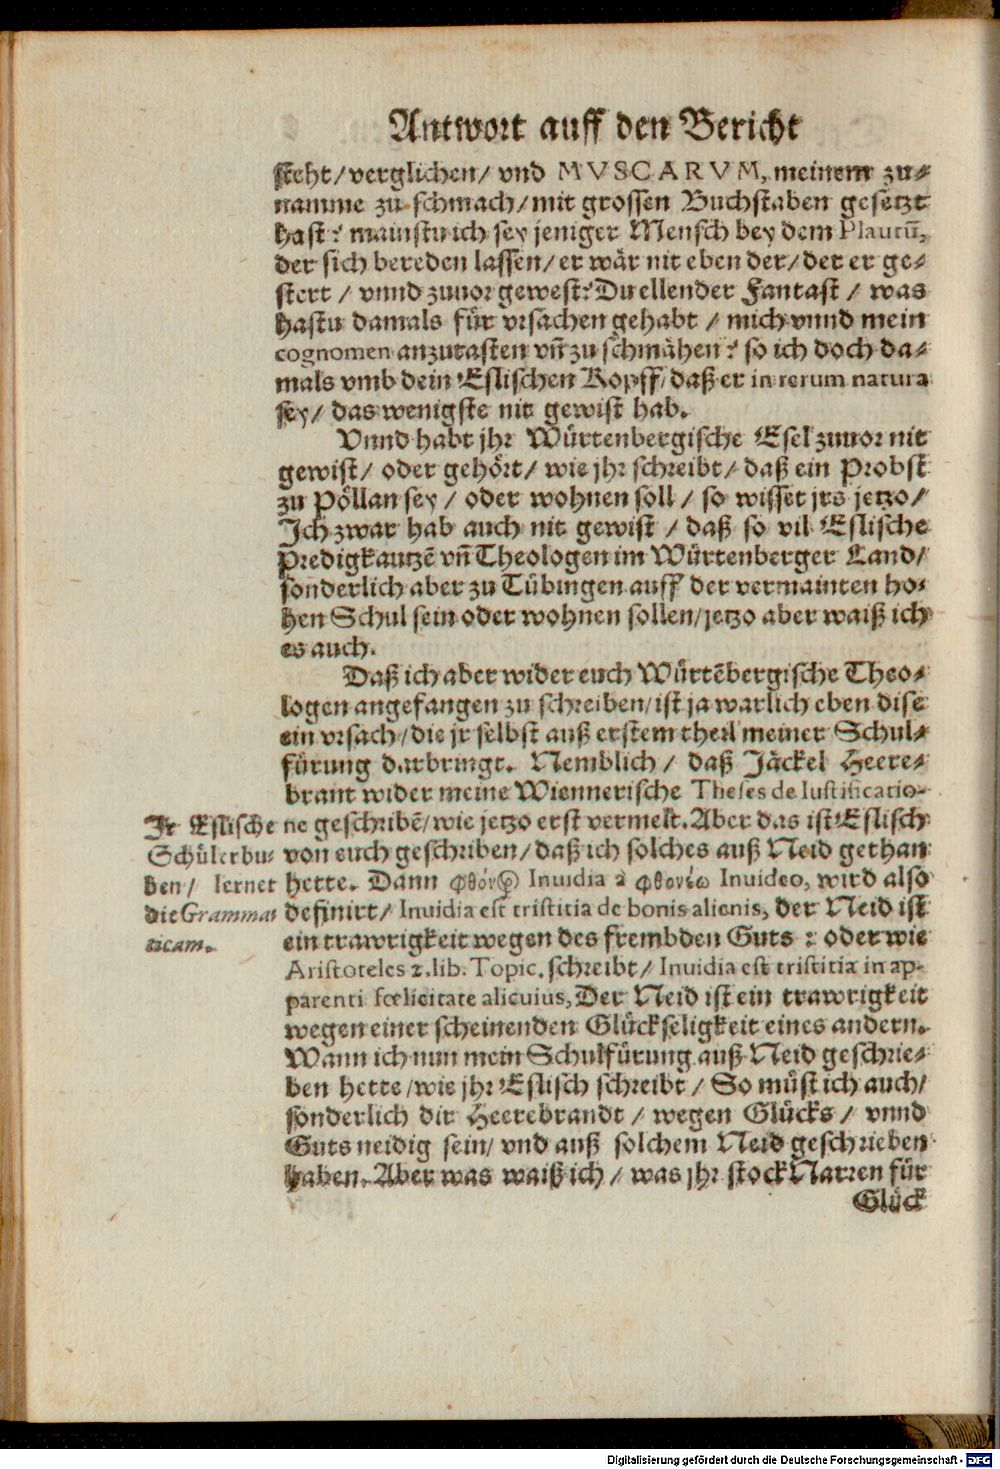 Antwort auff den Bericht
steht/ verglichen/ vnd MVSCARVM, meinem zu⸗
namme zu schmach/ mit grossen Buchstaben gesetzt
hast? mainstu ich sey jeniger Mensch bey dem Plautū,
der sich bereden lassen/ er wär nit eben der/ der er ge⸗
stert / vnnd zuuor gewest? Du ellender Fantast / was
hastu damals für vrsachen gehabt / mich vnnd mein
cognomen anzutasten vn̄ zu schmähen? so ich doch da⸗
mals vmb dein Eslischen Kopff/ daß er in rerum natura
sey/ das wenigste nit gewist hab.
Vnnd habt jhr Würtenbergische Esel zuuor nit
gewist/ oder gehört/ wie jhr schreibt/ daß ein Probst
zu Pöllan sey / oder wohnen soll / so wisset jrs jetzo/
Ich zwar hab auch nit gewist / daß so vil Eslische
Predigkautzē vn̄ Theologen im Würtenberger Land/
sonderlich aber zu Tübingen auff der vermainten ho⸗
hen Schul sein oder wohnen sollen/ jetzo aber waiß ich
es auch.
Daß ich aber wider euch Würtēbergische Theo⸗
logen angefangen zu schreiben/ ist ja warlich eben dise
ein vrsach/ die jr selbst auß erstem theil meiner Schul⸗
fürung darbringt. Nemblich / daß Jäckel Heere⸗
brant wider meine Wiennerische Theses de Iustificatio-
ne geschribē/ wie jetzo erst vermelt. Aber das ist Eslisch
von euch geschriben/ daß ich solches auß Neid gethan
hette. Dann φθόνος Inuidia à φθονέω Inuideo, wird also
definirt/ Inuidia est tristitia de bonis alienis, der Neid ist
ein trawrigkeit wegen des frembden Guts : oder wie
Aristoteles 2. lib. Topic. schreibt/ Inuidia est tristitia in ap-
parenti fœlicitate alicuius, Der Neid ist ein trawrigkeit
wegen einer scheinenden Glückseligkeit eines andern.
Wann ich nun mein Schulfürung auß Neid geschrie⸗
ben hette / wie jhr Eslisch schreibt / So müst ich auch/
sonderlich dir Heerebrandt / wegen Glücks / vnnd
Guts neidig sein/ vnd auß solchem Neid geschrieben
haben. Aber was waiß ich / was jhr stock Narren für
Glück
Ir Eslische
Schülerbu⸗
ben/ lernet
die Gramma⸗
ticam.
Digitalisierung gefördert durch die Deutsche Forschungsgemeinschaft - DFG